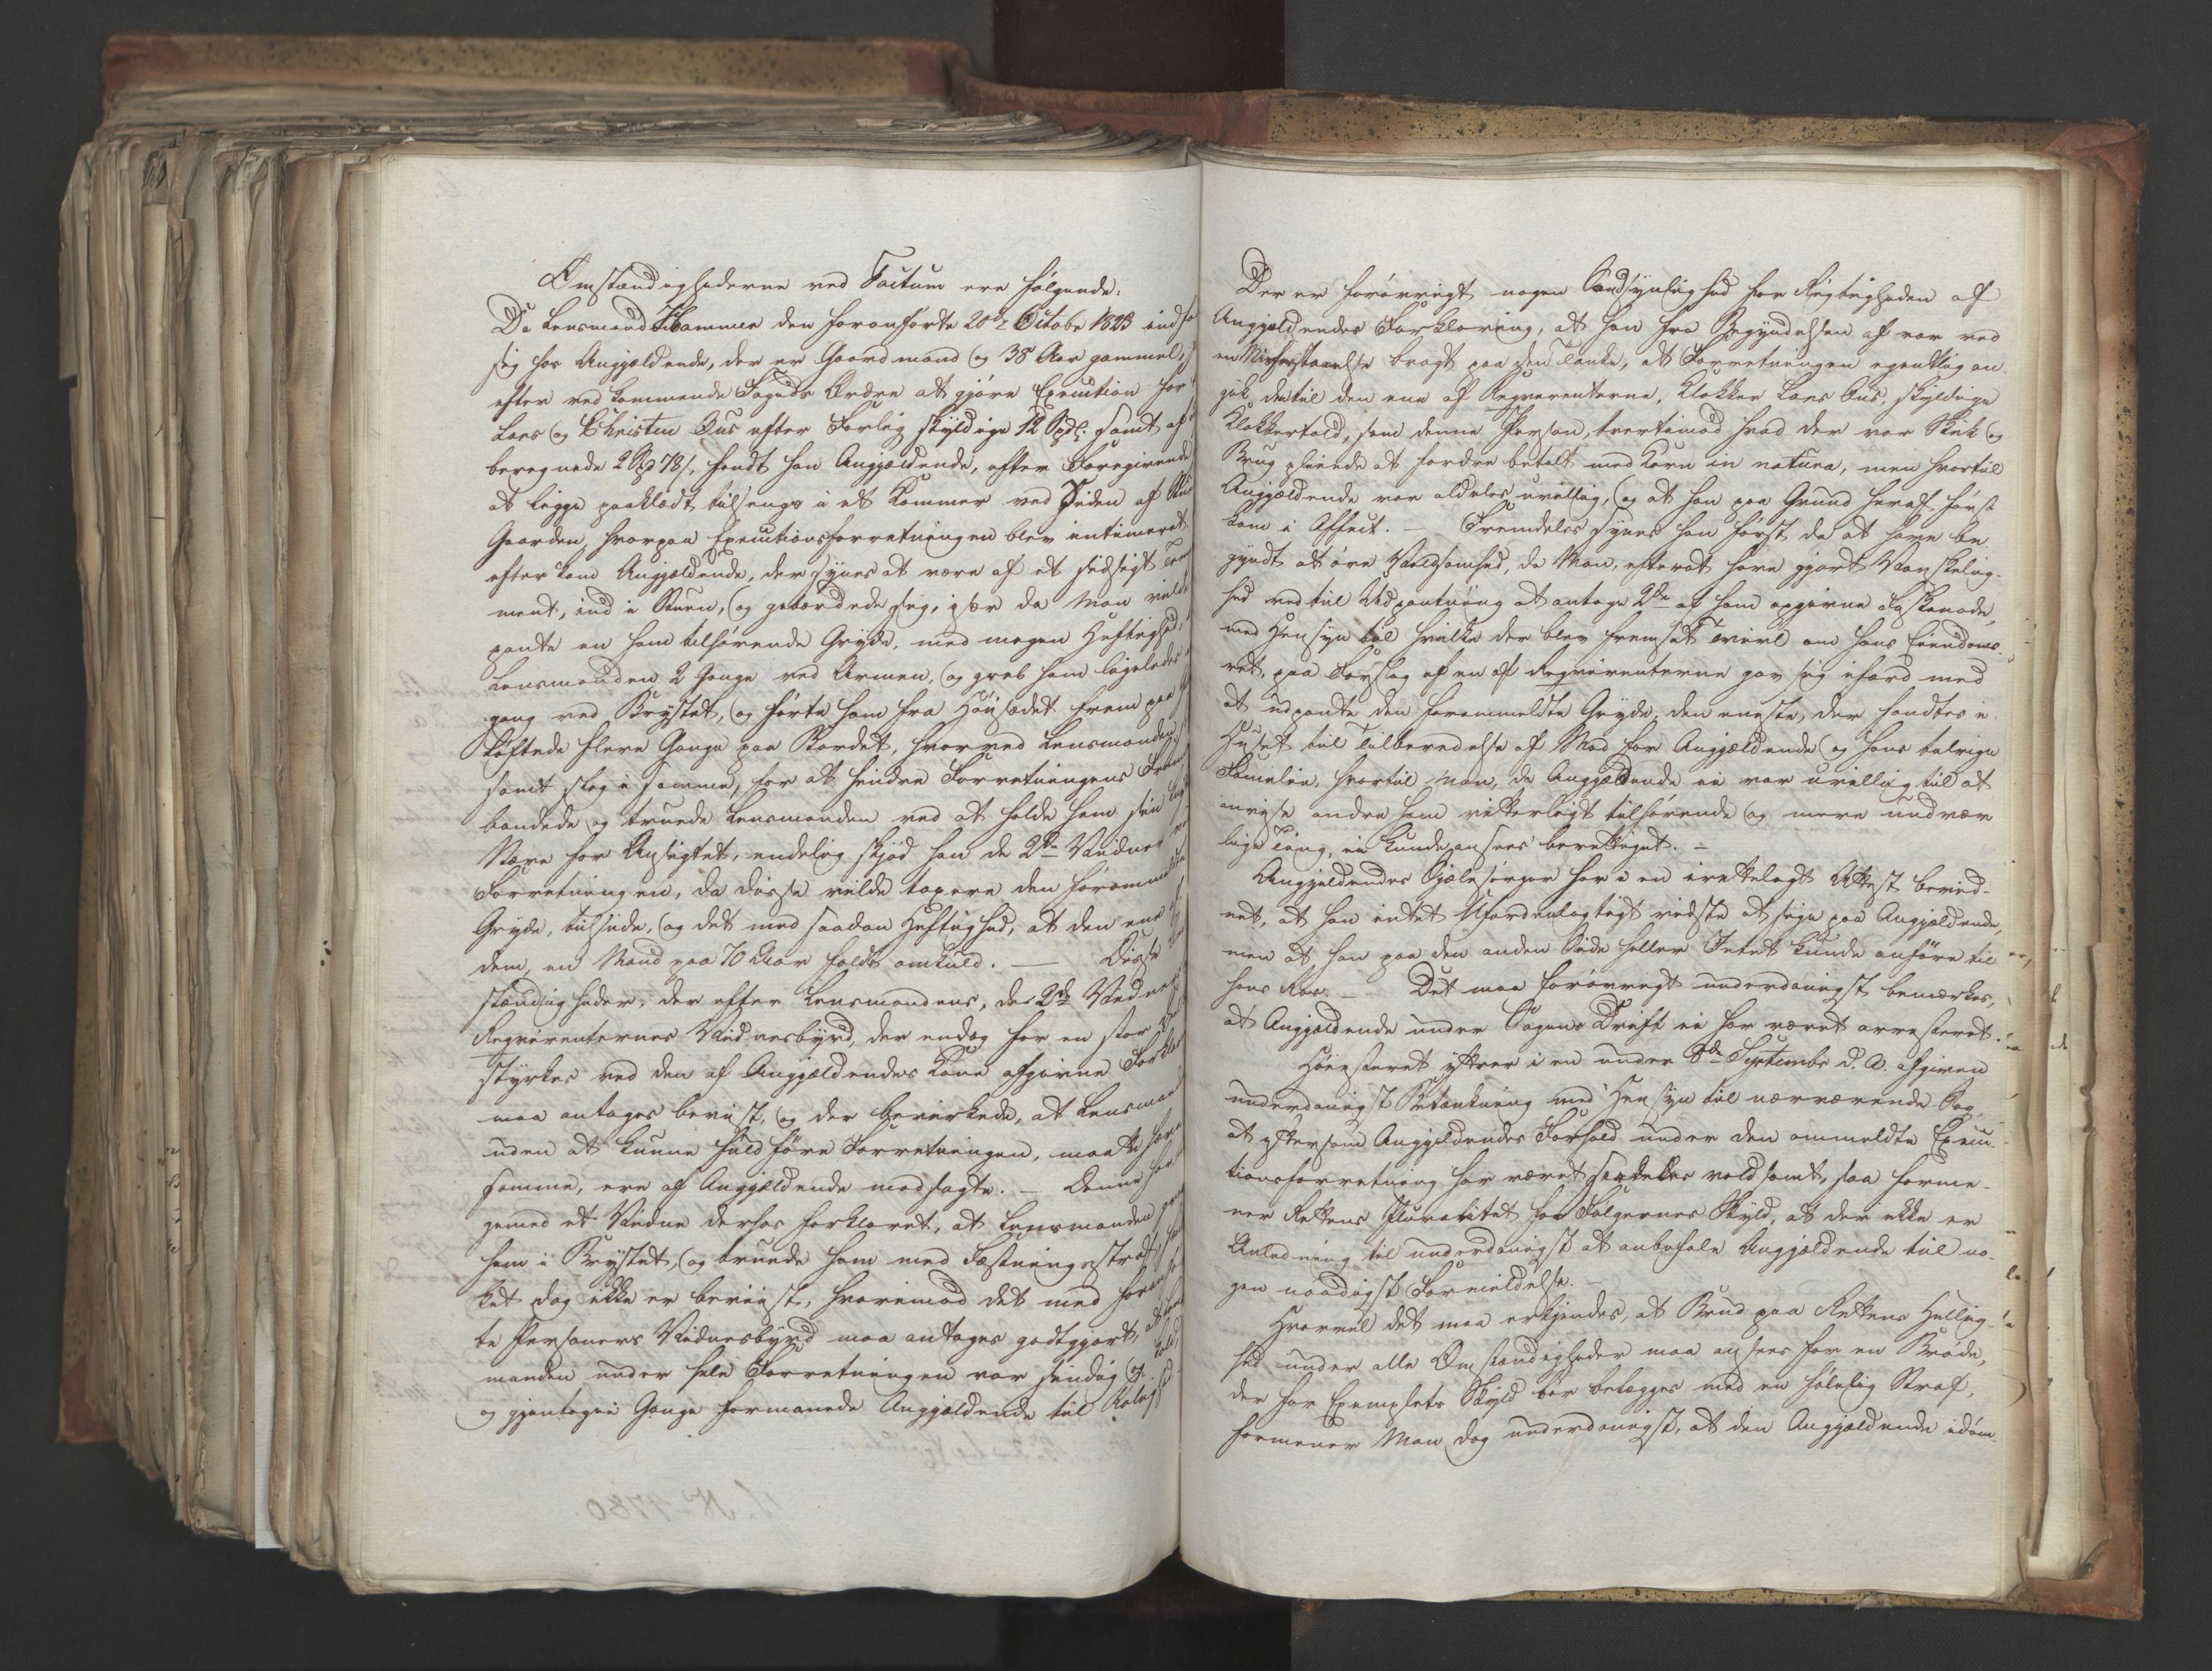 Omstændighederne ved Factum ere følgende:
Da Lensmand Hammer den foranførte 20de Octobr 1823 indf
sig hos Angjældende, der er Gaardmand og 38 Aar gammel,
efter vedkommende Fogeds Ordre at gjøre Execution for
Lars og Christen Aus efter Forlig skyldige 12 Spdl. samt af
beregnede 2 Spd 78 s, fandt han Angjældende, efter Foregivende
at ligge paaklædt tilsengs i et Kammer ved Siden af
Gaarden, hvorpaa Executionsforretningen blev intimeret.
efter kom Angjældende, der synes at være af et hidsigt Tem
ment, ind i Stuen, og gebærdede sig, især da Man vilde
pante en ham tilhørende Gryde, med megen Heftighed,
Lensmanden 2 Gange ved Armen, og greb ham ligeledes
gang ved Brystet, og førte ham fra Høisædet frem paa
løftede flere Gange paa Bordet, hvorved Lensmanden
samt slog i samme, for at hindre Forretningens Frem
bandede og truede Lensmanden ved at holde ham sin
Næve for Ansigtet, endelig skjød han de 2de Vidner
Forretningen, da disse vilde taxere den forommeldte
Gryde, tilside, og det med saadan Heftighed, at den ene af
dem, en Mand paa 70 Aar faldt omkuld. — Disse
stændigheder, der efter Lensmandens, de 2de Vidners
Reqvirenternes Vidnesbyrd, der endog for en stor Deel
styrkes ved den af Angjældendes Kone afgivne Forklar
maa antages beviist, og der bevirkede, at Lensmand
uden at kunne fuldføre Forretningen, maatte hæve
samme, ere af Angjældende modsagte. — Denne har
gemed et Vidne derhos forklaret, at Lensmanden greb
ham i Brystet, og truede ham med Fæstningsstraf,
ket dog ikke er beviist, hvorimod det med foranfør
te Personers Vidnesbyrd maa antages godtgjort, at
manden under hele Forretningen var sindig og
og gjentagne Gange formanede Angjældende til Rolighed.
Der er forøvrigt nogen Sandsynlighed for Rigtigheden af
Angjældendes Forklaring, at han fra Begyndelsen af var ved
en Misforstaaelse bragt paa den Tanke, at Forretningen egentlig an
gik den til den ene af Reqvirenterne, Klokker Lars Aus, skyldige
Klokkertold, som denne Person, tvertimod hvad der var Skik og
Brug pleiede at fordre betalt med Korn in natura, men hvortil
Angjældende var aldeles uvillig, og at han paa Grund heraf først
kom i Affect. — Fremdeles synes han først da at have be
gyndt at øve Voldsomhed, da Man, efterat have gjort Vanskelig-
hed ved til Udpantning at antage 2de af ham opgivne
med Hensyn til hvilke der blev fremsat Tvivl om hans Eiendoms-
ret, paa Forslag af en af Reqvirenterne gav sig ifærd med
at udpante den forommeldte Gryde, den eneste, der fandtes i
Huset til Tilberedelse af Mad for Angjældende og hans talrige
Familie, hvortil Man, da Angjældende ei var uvillig til at
anvise andre ham vitterligt tilhørende og mere undvær
lige Ting, ei kunde ansees berettiget. —
Angjældendes Sjælesørger har i en irettelagt Attest bevid-
net, at han intet Ufordeelagtigt vidste at sige paa Angjældende,
men at han paa den anden Side heller Intet kunde anføre til
hans Roes. — Det maa forøvrigt underdanigst bemærkes,
at Angjældende under Sagens Drift ei har været arresteret.
Høiesteret yttrer i en under 8de Septembr d. A. afgiven
underdanigst Betænkning med Hensyn til nærværende Sag,
at eftersom Angjældendes Forhold under den ommeldte Execu-
tionsforretning har været særdeles voldsomt, saa forme-
ner Rettens Pluralitet for Følgernes Skyld, at der ikke er
Anledning til underdanigst at anbefale Angjældende til no-
gen naadigst Formildelse. —
Hvorvel det maa erkjendes, at Brud paa Rettens Hellig-
hed under alle Omstændigheder maa ansees for en Brøde,
der for Exemplets Skyld bør belægges med en følelig Straf,
formener Man dog underdanigst, at den Angjældende idøm-